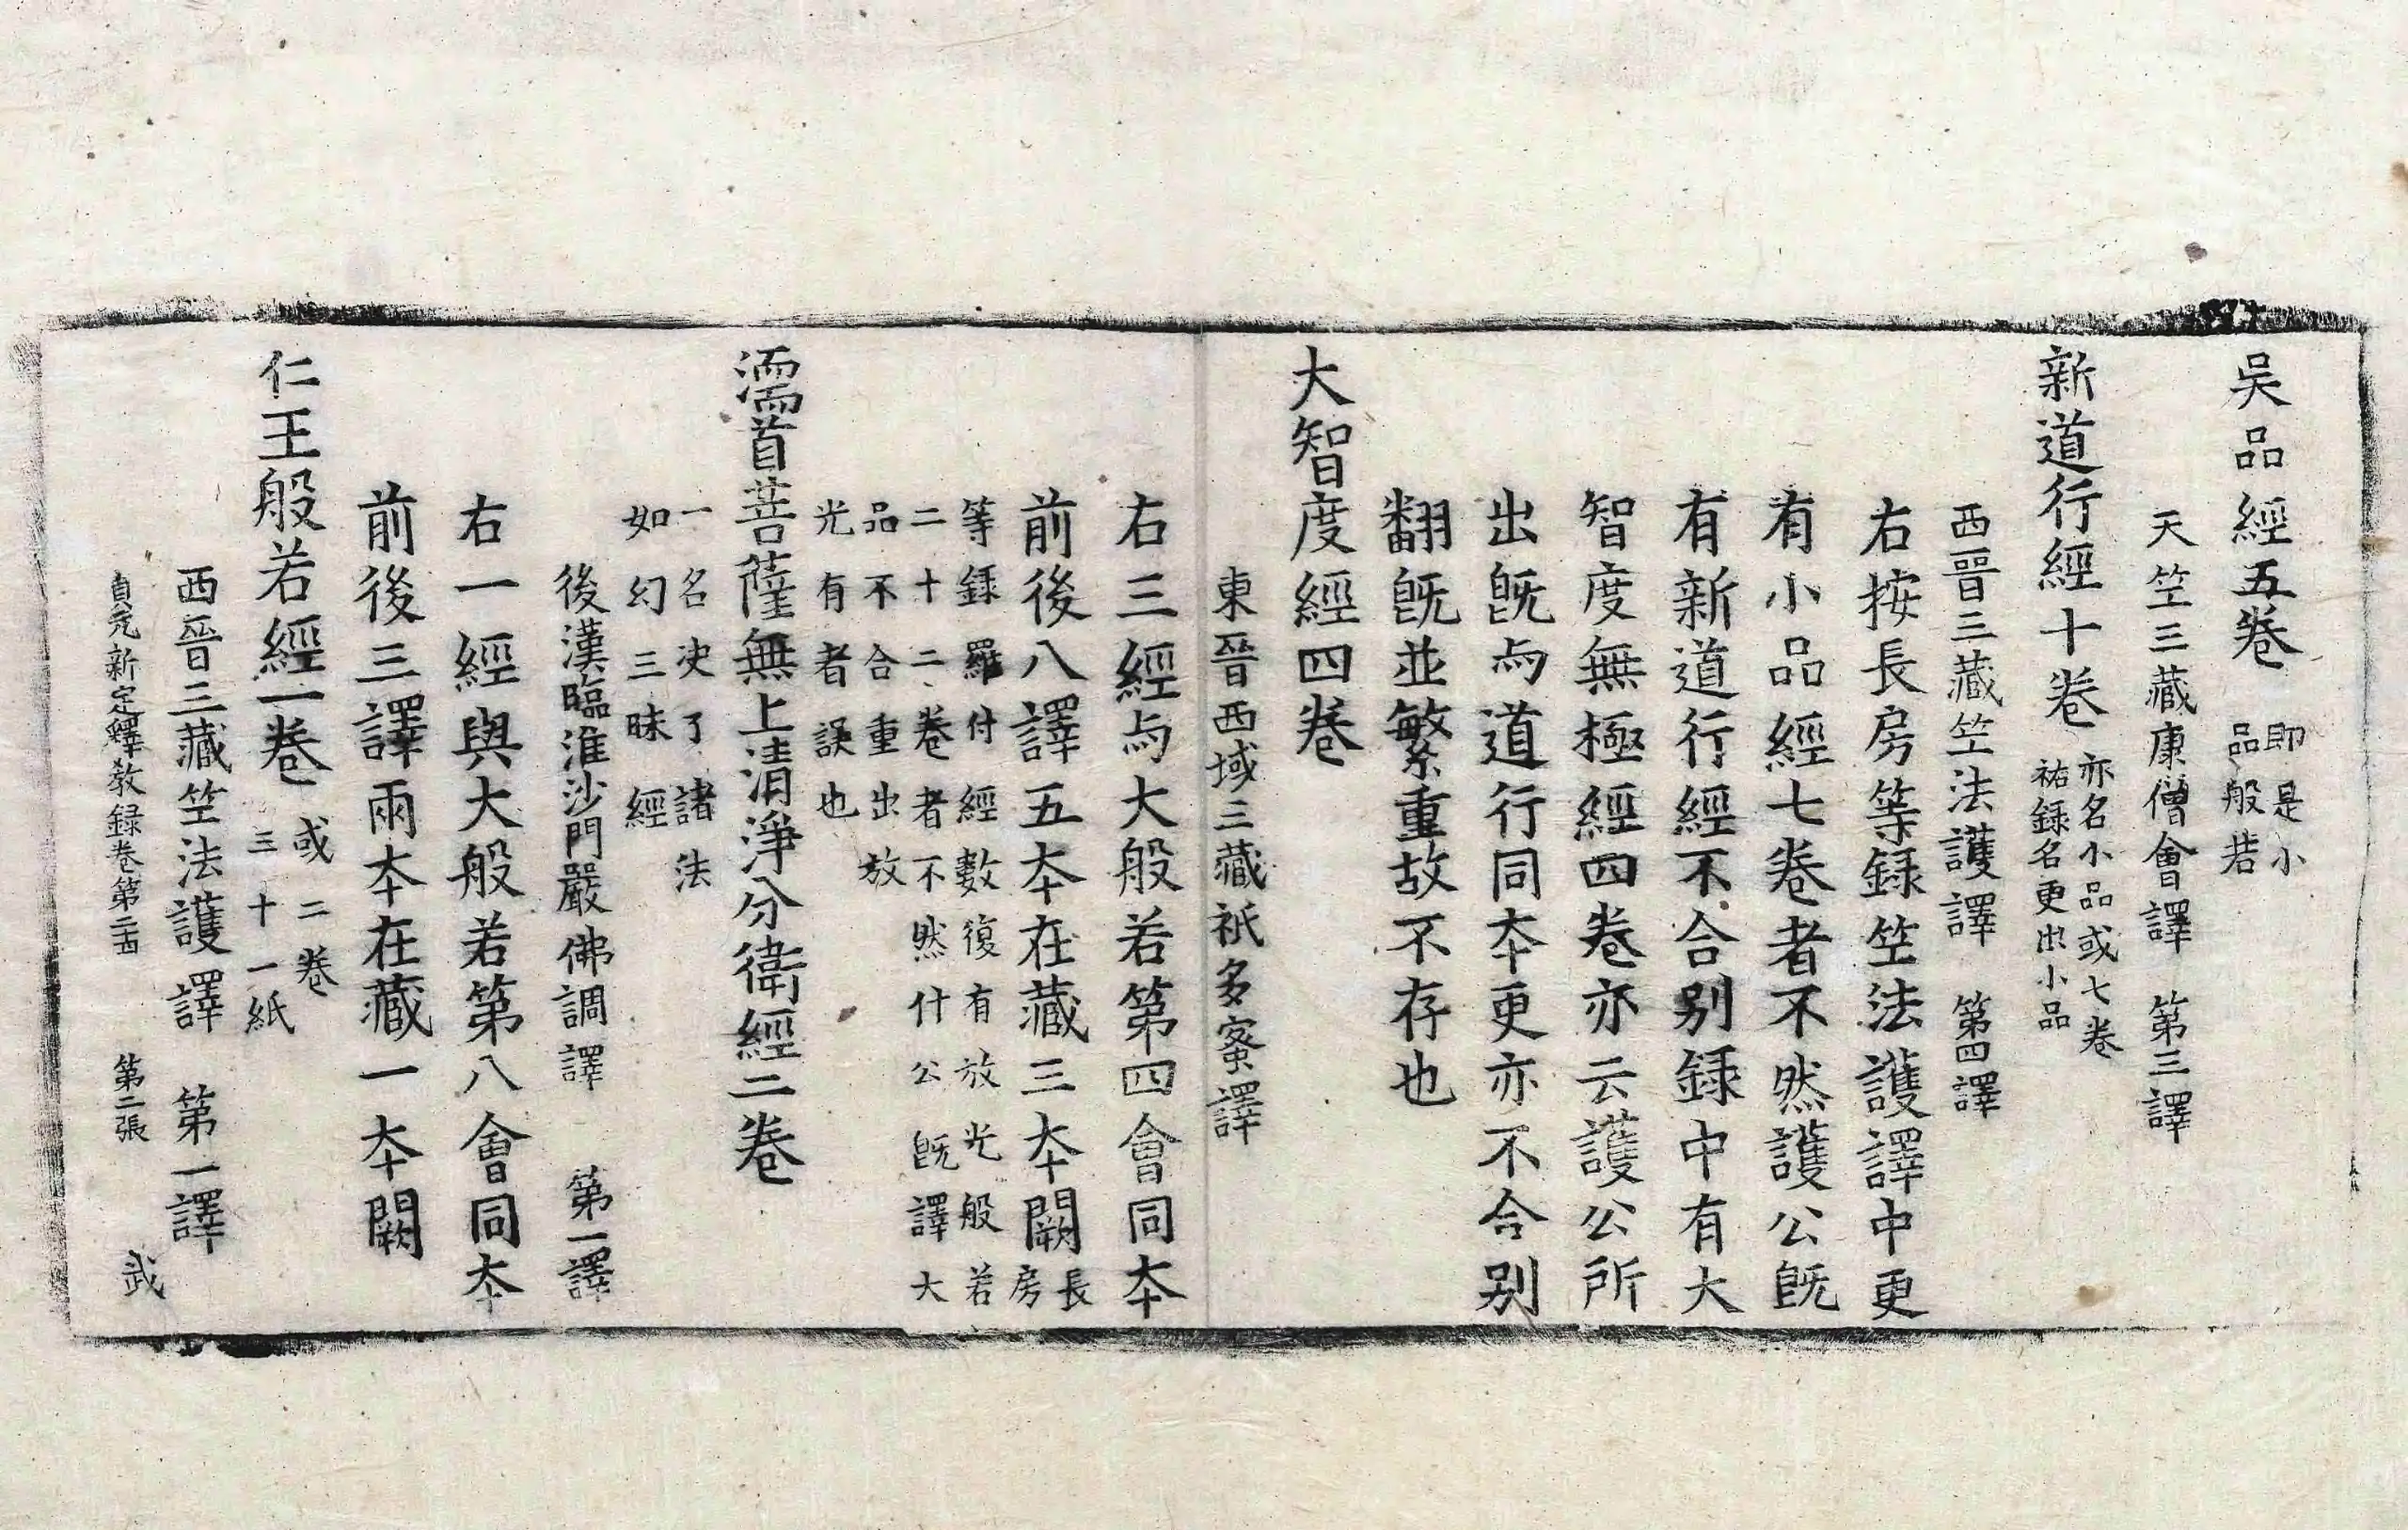 吳品經五卷 即是小品般若
天竺三藏康僧會譯 第三譯
新道行經十卷 亦名小品或七卷祐録名更出小品
西晉三藏竺法護譯 第四譯
右按長房等録竺法護譯中更
有小品經七卷者不然護公旣
有新道行經不合別録中有大
智度無極經四卷亦云護公所
出旣与道行同夲更亦不合別
翻旣並繁重故不存也
大智度經四卷
東晉西域三藏祇多蜜譯
右三經与大般若第四會同夲
前後八譯五夲在藏三夲闕 長房
等録羅什經數復有放光般若
二十二卷者不然什公旣譯大
品不合重出放
光有者誤也
濡首菩薩無上清淨分衛經二卷
一名决了諸法
如幻三昧經
後漢臨淮沙門嚴佛調譯 第一譯
右一經與大般若第八會同夲
前後三譯兩夲在藏一夲闕
仁王般若經一卷 或二卷三十一紙
西晉三藏竺法護譯 第一譯
貞元新定釋教録卷第二十四 第二張 武